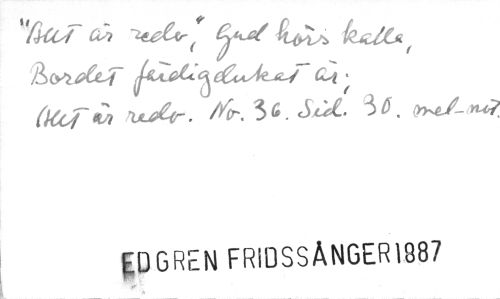 "Allt är redo", Gud hörs kalla,
Bordet färdigdukat är;
Allt är redo. No. 36. Sid. 30. mel-not.
EDGREN FRIDSSÅNGER 1887